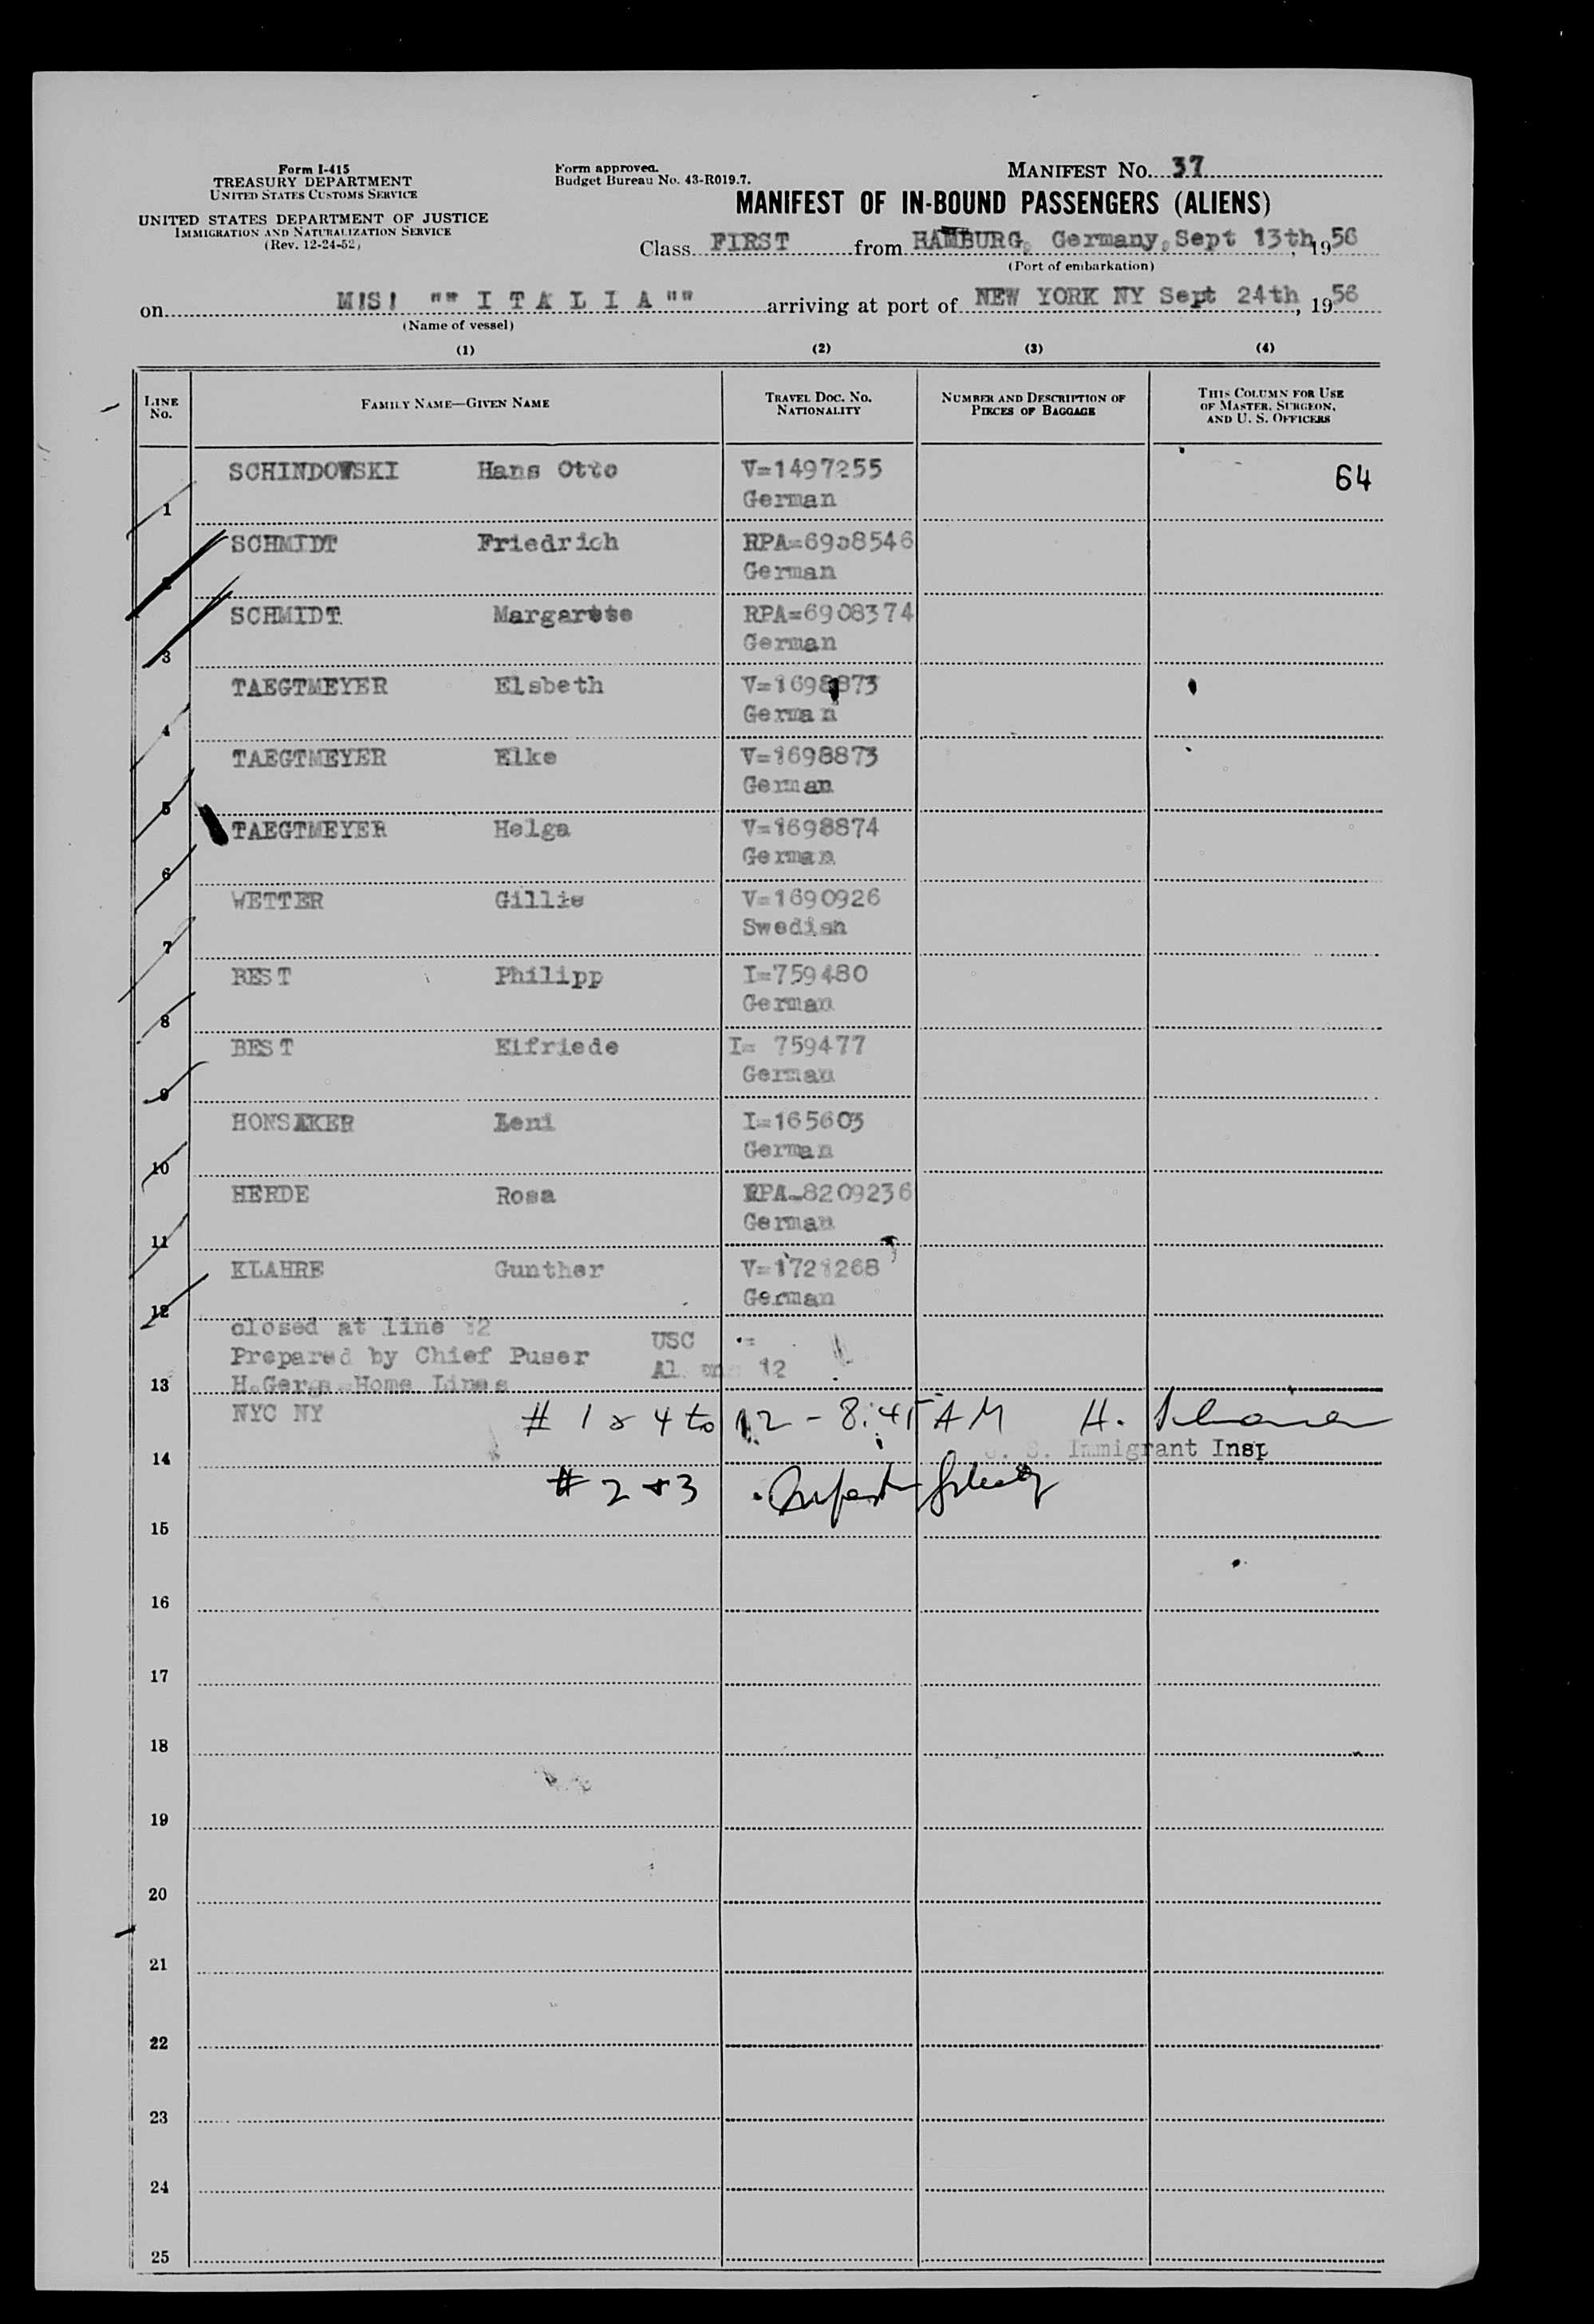 Form I-415
TREASURY DEPARTMENT
UNITED STATES CUSTOMS SERVICE
UNITED STATES DEPARTMENT OF JUSTICE
IMMIGRATION AND NATURALIZATION SERVICE
(Rev. 12-24-52)
Form approved.
Budget Bureau No. 43-R019.7.
MANIFEST NO. 37
MANIFEST OF IN-BOUND PASSENGERS (ALIENS)
Class FIRST from HAMBURG, Germany, Sept 13th, 1956
(Port of embarkation)
on M!S! "" I T A L I A "" arriving at port of NEW YORK NY Sept 24th, 1956
(Name of vessel)
(1) (2) (3) (4)
LINE NO. FAMILY NAME—GIVEN NAME TRAVEL DOC. NO. NATIONALITY NUMBER AND DESCRIPTION OF PIECES OF BAGGAGE THIS COLUMN FOR USE OF MASTER, SURGEON, AND U. S. OFFICERS
SCHINDOWSKI Hans Otto V=1497255 64
1 German
SCHMIDT Friedrich
2 German
SCHMIDT Margarete RPA=6908374
3 German
TAEGTMEYER Elsbeth V=1698873
4 German
TAEGTMEYER Elke V=1698873
5 German
TAEGTMEYER Helga V=1698874
6 German
WETTER Gillis V=1690926
7 Swedish
BEST Philipp I=759480
8 German
BEST Elfriede I= 759477
9 German
HONSAKER Leni I=165603
10 German
HERDE Rosa RPA-8209236
11 German
KLAHRE Gunther V=1721268
12 German
closed at line 12 USC
Prepared by Chief Puser 12
13 H.Gerg. Home Lines
NYC NY # 1 & 4 to 12 - 8:45 AM H.
14 U. S. Immigrant Insp
# 2 + 3
15
16
17
18
19
20
21
22
23
24
25